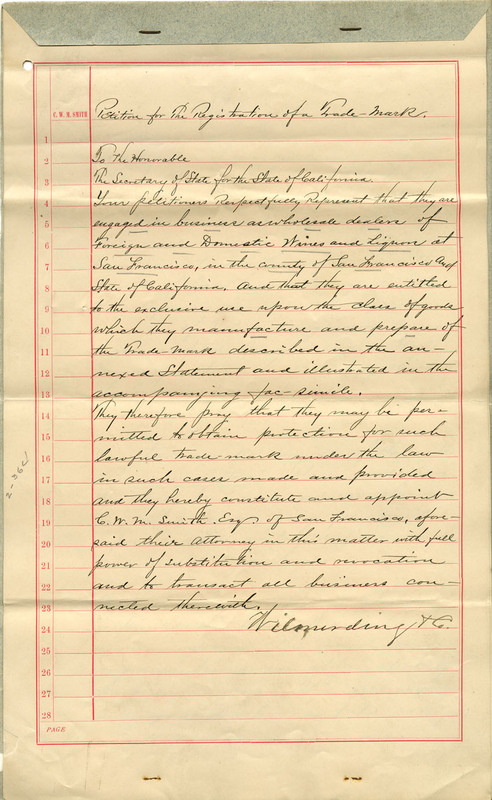 C. W. M. SMITH
Petition for The Registration of a Trade-Mark.
1
2 To the Honorable
3 The Secretary of State for the State of California.
4 Your petitioners Respectfully Represent that they are
5 engaged in business as wholesale dealers of
6 Foreign and Domestic Wines and Liquors at
7 San Francisco, in the county of San Francisco and
8 State of California. And that they are entitled
9 to the exclusive use upon the class of goods
10 which they manufacture and prepare of
11 the Trade-Mark described in the an-
12 nexed Statement and illustrated in the
13 accompanying fac-simile.
14 They therefore pray that they may be per-
15 mitted to obtain protection for such
16 lawful trade-mark under the law
17 in such cases made and provided
18 and they hereby constitute and appoint
19 C. W. M. Smith, Esq. of San Francisco, afore-
20 said their Attorney in this matter with full
21 power of substitution and revocation
22 and to transact all business con-
23 nected therewith.
24 Wilmerding & Co.
25
26
27
28
PAGE